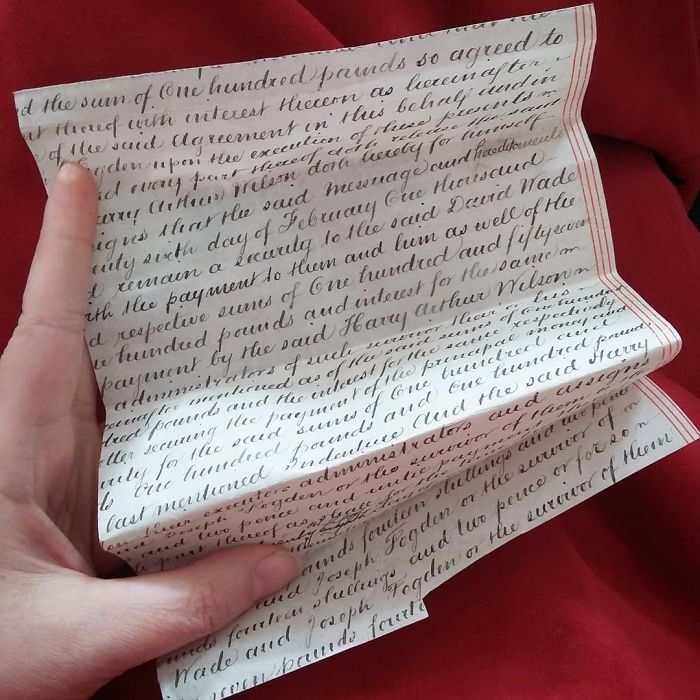 d the sum of One hundred pounds so agreed to
thereof with interest thereon as hereinafter
of the said Agreement in this behalf and in
ogden upon the execution of these presents
and every part thereof doth release the said
Harry Arthur Wilson doth hereby for himself
signs that the said Messuage and hereditaments
enty sixth day of February One thousand
d remain a security to the said David Wade
ith the payment to them and him as well of the
d respective sums of One hundred and fifty seven
e hundred pounds and interest for the same
payment by the said Harry Arthur Wilson
administrators of such survivor their or his
reinafter mentioned as of the said sums of One hundred
dred pounds and the interest for the same respectively
tter securing the payment of the principal money and
urity for the said sums of One hundred and
One hundred pounds and One hundred pounds
last mentioned Indenture And the said Harry
their executors administrators and assigns
and Joseph Fogden or the survivor of them
and two pence and until payment
part thereof as shall for
pounds fourteen shillings and two pence
and Joseph Fogden or the survivor of
ounds fourteen shillings and two pence or for so
Wade and Joseph Fogden or the survivor of them
seven pounds fourte